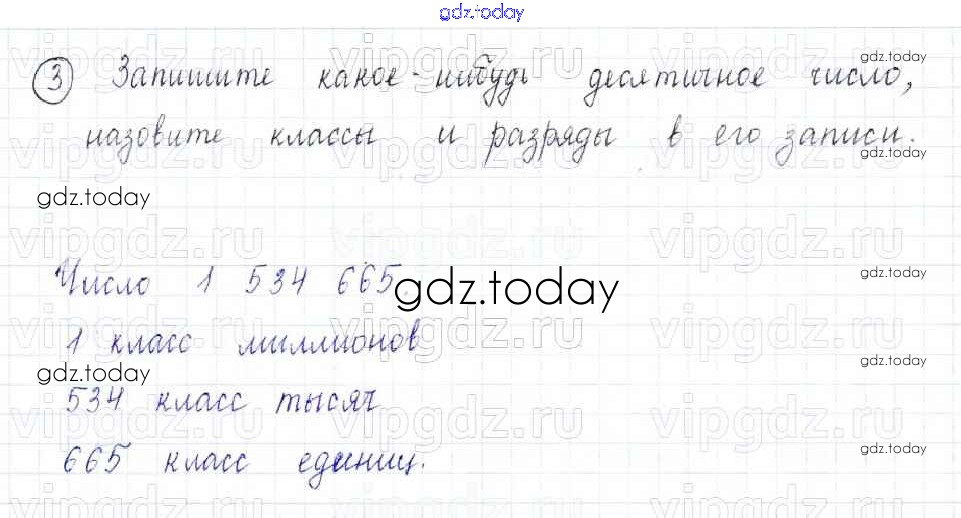 gdz.today
③ Запишите какое-нибудь десятичное число,
gdz.today
назовите классы и разряды в его записи.
gdz.today
gdz.today
vipgdz.ru vipgdz.ru vipgdz.ru
Число 1 534 665.
gdz.today
gdz.today
1 класс миллионов
gdz.today
gdz.today
534 класс тысяч
665 класс единиц.
gdz.today